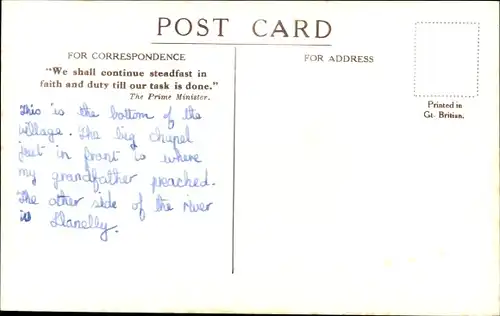 POST CARD
FOR CORRESPONDENCE
"We shall continue steadfast in
faith and duty till our task is done."
The Prime Minister.
This is the bottom of the
village. The big chapel
just in front is where
my grandfather preached.
The other side of the river
is Llanelly.
FOR ADDRESS
Printed in
Gt. Britian.